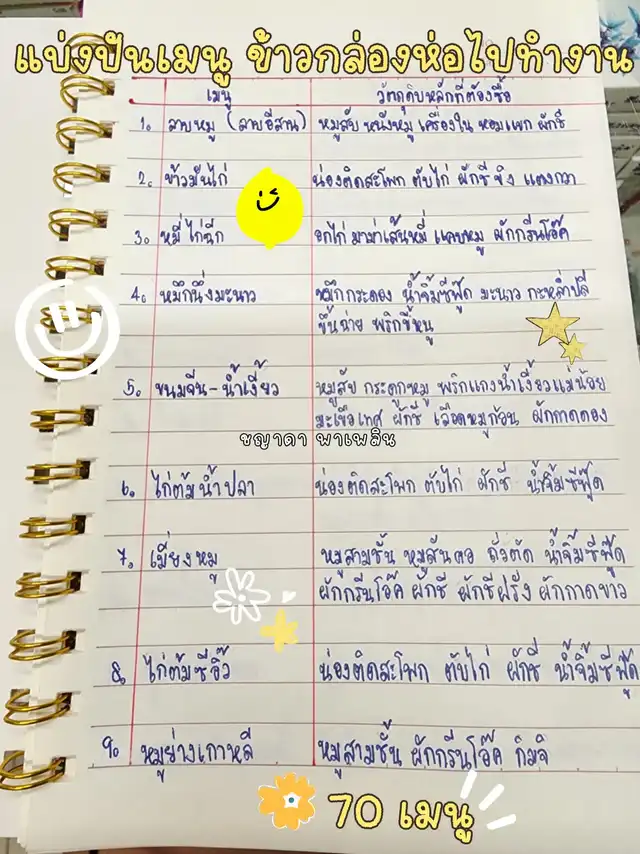 แบ่งปันเมนู ข้าวกล่องห่อไปทำงาน
เมนู วัตถุดิบหลักที่ต้องซื้อ
1. ลาบหมู (ลาบอีสาน) หมูสับ หนังหมู เครื่องใน หอมแขก ผักชี
2. ข้าวมันไก่ น่องติดสะโพก ตับไก่ ผักชี ขิง แตงกวา
3. หมี่ไก่ฉีก อกไก่ มาม่าเส้นหมี่ แคบหมู ผักกรีนโอ๊ค
4. หมึกนึ่งมะนาว หมึกกระดอง น้ำจิ้มซีฟู๊ด มะนาว กะหล่ำปลี
ขึ้นฉ่าย พริกขี้หนู
5. ขนมจีน-น้ำเงี้ยว หมูสับ กระดูกหมู พริกแกงน้ำเงี้ยวแม่น้อย
มะเขือเทศ ผักชี เลือดหมูก้อน ผักกาดดอง
ชญาดา พาเพลิน
6. ไก่ต้มน้ำปลา น่องติดสะโพก ตับไก่ ผักชี น้ำจิ้มซีฟู๊ด
7. เมี่ยงหมู หมูสามชั้น หมูสันคอ ถั่วตัด น้ำจิ้มซีฟู๊ด
ผักกรีนโอ๊ค ผักชี ผักชีฝรั่ง ผักกาดขาว
8. ไก่ต้มซีอิ๊ว น่องติดสะโพก ตับไก่ ผักชี น้ำจิ้มซีฟู๊ด
9. หมูย่างเกาหลี หมูสามชั้น ผักกรีนโอ๊ค กิมจิ
70 เมนู